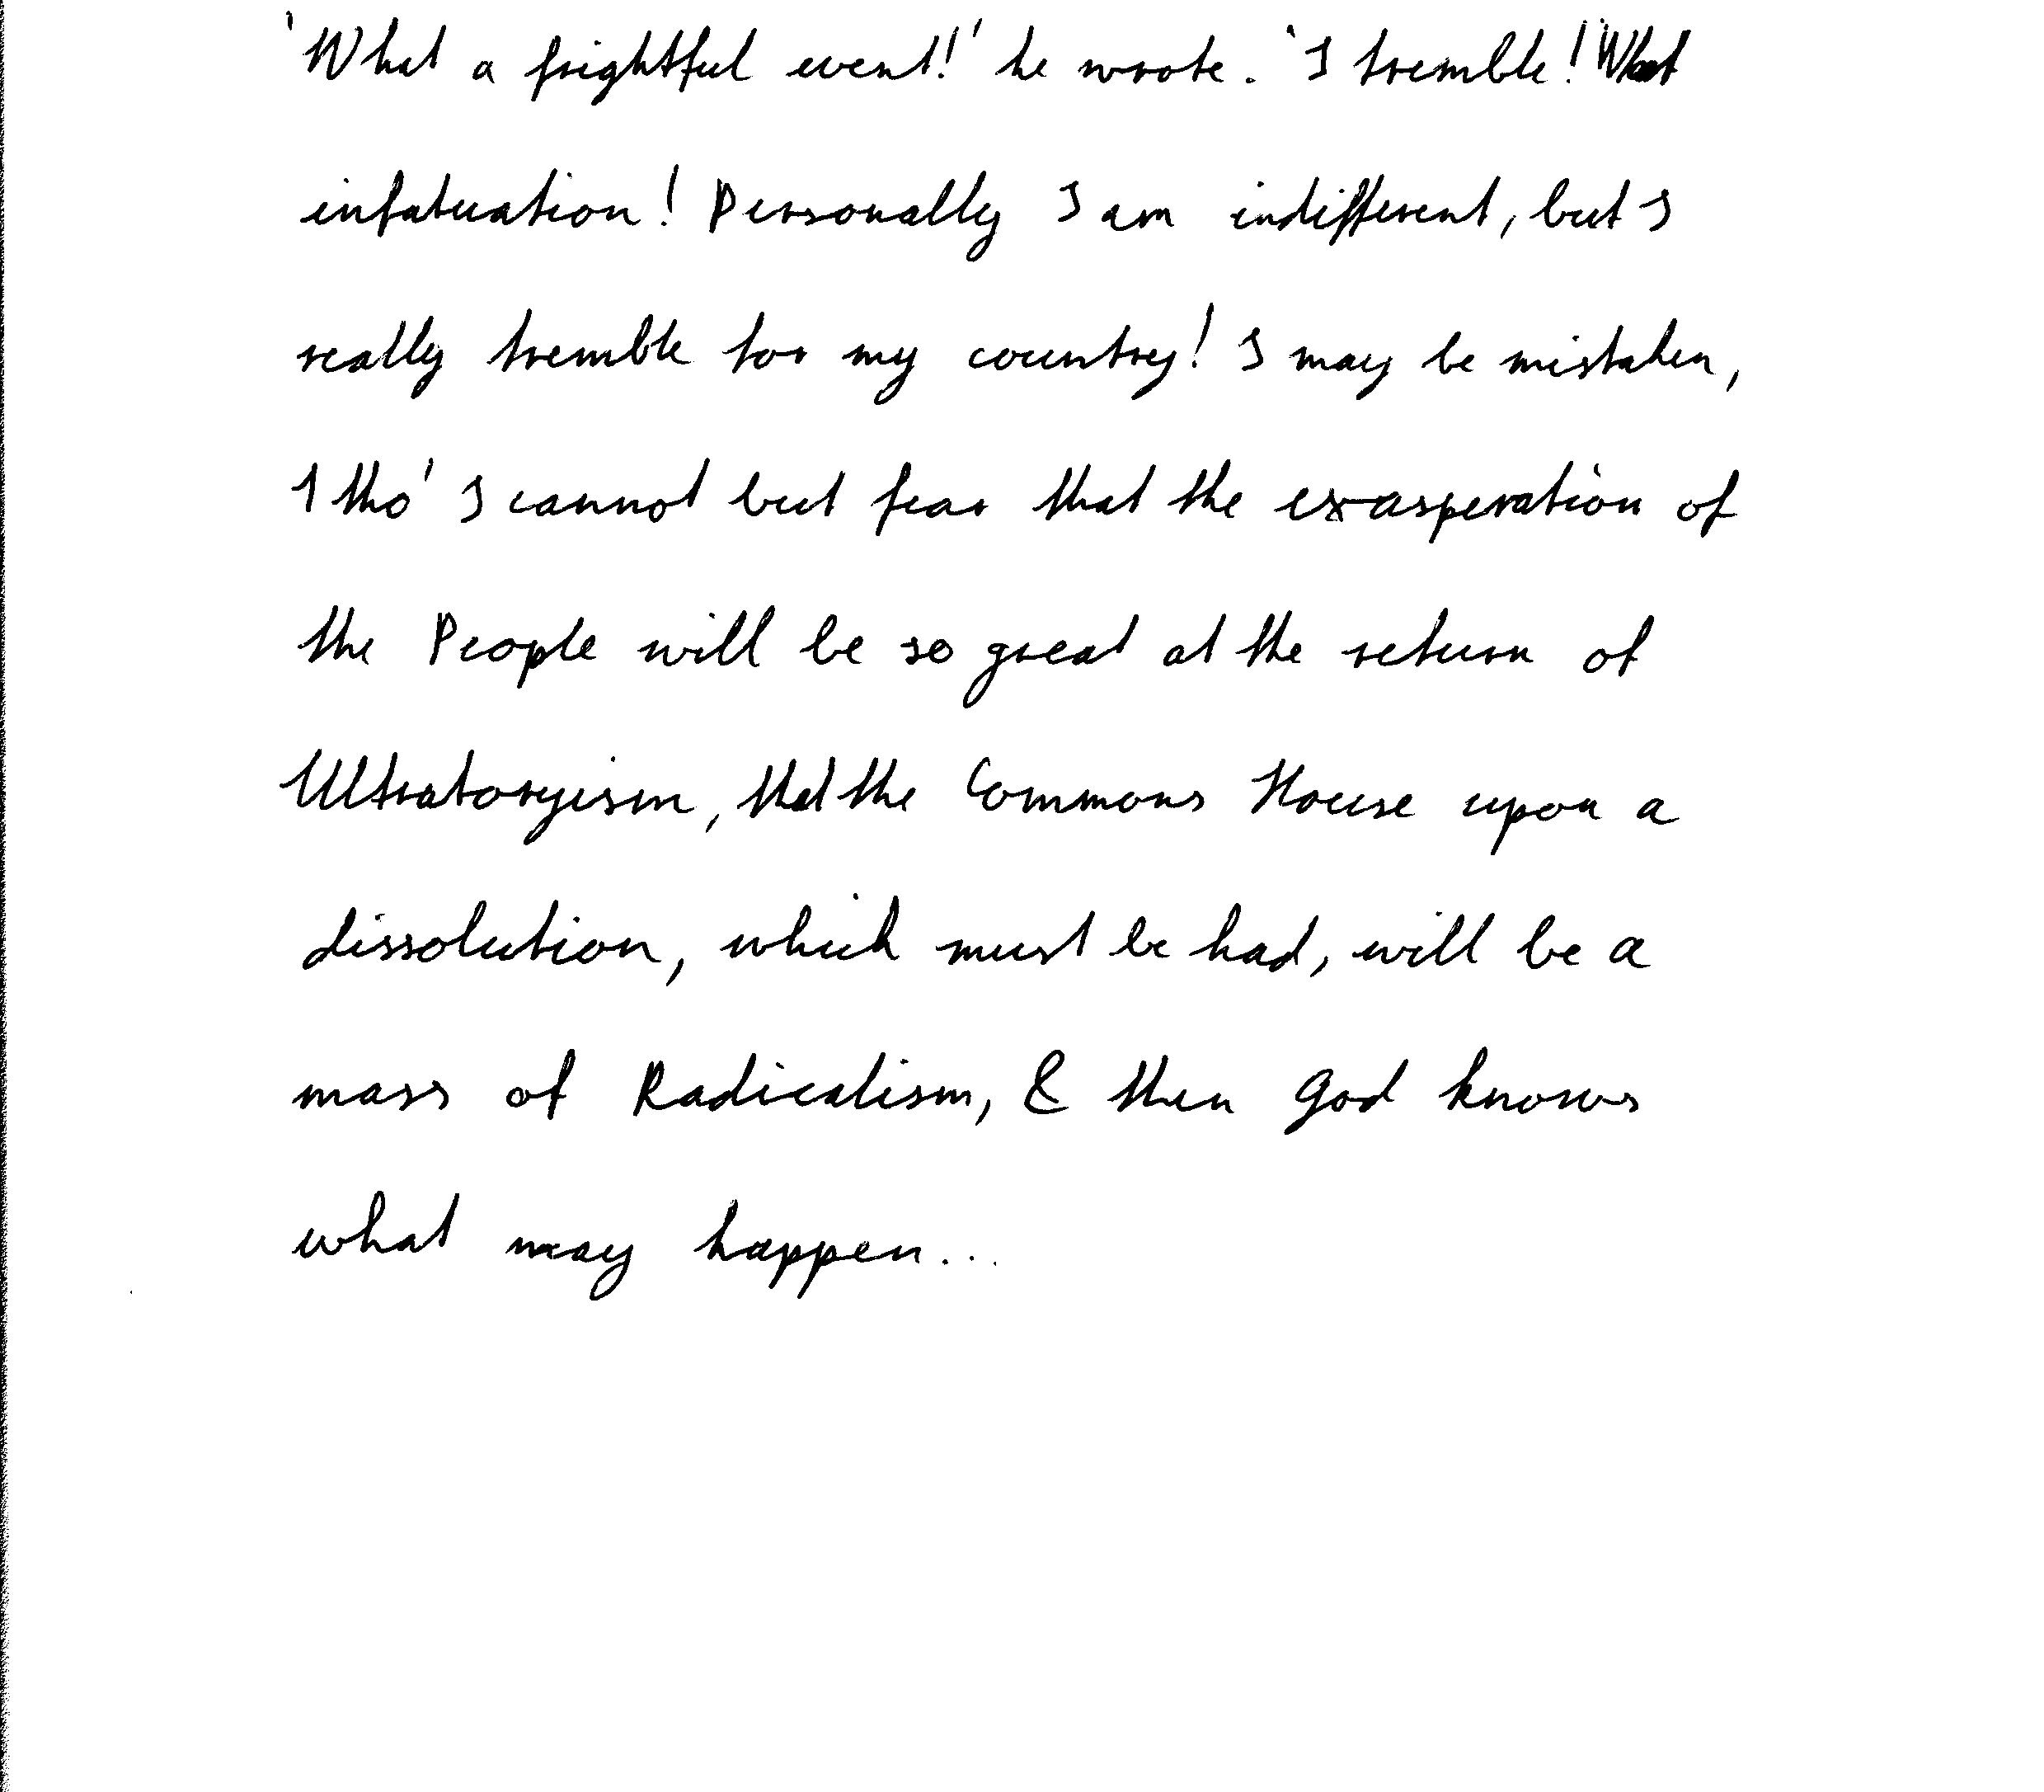 'What a frightful event!' he wrote. 'I tremble! What
infatuation! Personally I am indifferent, but I
really tremble for my country! I may be mistaken,
I tho' I cannot but fear that the exasperation of
the People will be so great at the return of
Ultratoryism, that the Commons House upon a
dissolution, which must be had, will be a
mass of Radicalism, & then God knows
what may happen...